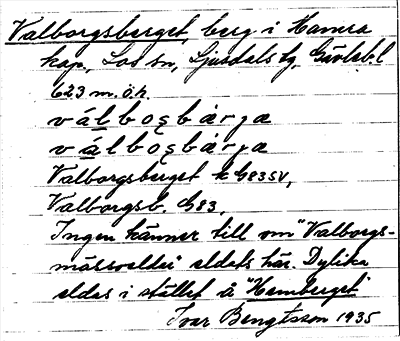 Valborgsberget, berg i Hamra
kap., Los sn, Ljusdals tg, Gävleb. l
623 m. ö. h.
Valborgsberget k G83SV,
Valborgsb. G83,
Ingen känner till om "Valborgs-
mässoeldar" eldats här. Dylika
eldas i stället å "Hemberget"
Ivar Bengtsson 1935